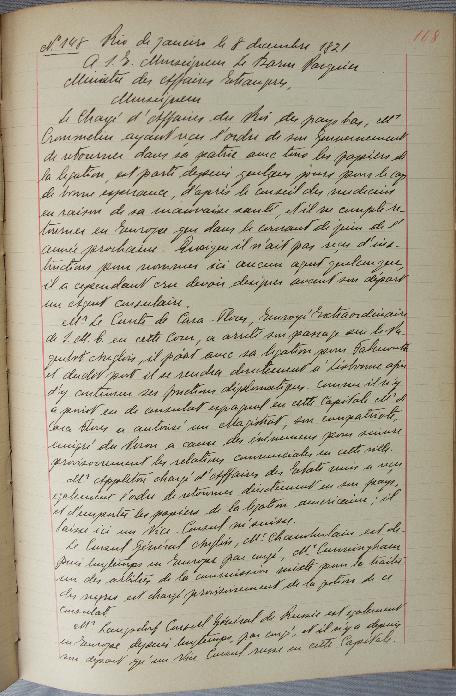 Nº 148 Rio de janeiro le 8 decembre 1821
168
A S. E. Monseigneur Le Baron Pasquier
Ministre des Affaires Etrangères,
Monseigneur
Le Chargé d'Affaires du Roi des pays bas, Mr
Crommelin ayant reçu l'ordre de son Gouvernement
de retourner dans sa patrie avec tous les papiers de
la légation, est parti depuis quelques jours pour le cap
de bonne esperance, d'après le conseil des medecins
en raison de sa mauvaise santé, et il ne compte re-
tourner en Europe que dans le courant de juin de l'
année prochaine. Quoique il n'ait pas reçu d'ins-
tructions pour nommer ici aucun agent quelconque,
il a cependant cru devoir designer avant son départ
un agent consulaire.
Mr Le Comte de Casa-Flores, Envoyé Extraordinaire
de S. M. C. en cette Cour, a arrêté son passage sur le Pa-
quebot Anglois, il part avec sa légation pour Falmouth
et dudit port il se rendra directement à Lisbonne afin
d'y continuer ses fonctions diplomatiques. Comme il n'y
a point eu de consulat espagnol en cette Capitale Mr de
Casa Flores a autorisé un Magistrat, son compatriote
emigré du Perou a cause des évènemens pour suivre
provisoirement les relations commerciales en cette ville.
Mr Appleton chargé d'Affaires des Etats unis a reçu
egalement l'ordre de retourner directement en son pays,
et d'emporter les papiers de la légation americaine; il
laisse ici un Vice-Consul
Le Consul Général Anglois, Mr Chamberlain est de-
puis longtemps en Europe par congé, Mr Cunningham
un des arbitres de la commission mixte pour la traite
des negres est chargé provisoirement de la gestion de ce
consulat.
Mr Langsdorf Consul Général de Russie est egalement
en Europe depuis longtemps, par congé, et il n'y a depuis
son départ qu'un Vice Consul russe en cette Capitale.